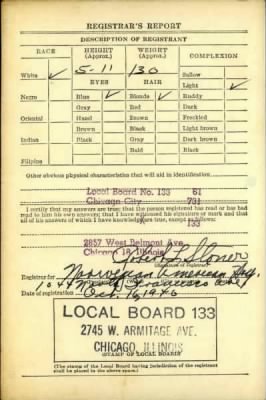 REGISTRAR'S REPORT
DESCRIPTION OF REGISTRANT
RACE HEIGHT (Approx.) WEIGHT (Approx.) COMPLEXION
White ✓ 5-11 130 Sallow
EYES HAIR Light ✓
Negro Blue ✓ Blonde ✓ Ruddy
Gray Red Dark
Oriental Hazel Brown Freckled
Brown Black Light brown
Indian Black Gray Dark brown
Bald Black
Filipino
Other obvious physical characteristics that will aid in identification
Local Board No. 133 61
Chicago City 731
I certify that my answers are true; that the person registered has read or has had
read to him his own answers; that I have witnessed his signature or mark and that
all of his answers of which I have knowledge are true, except as follows:
133
2857 West Belmont Ave.
Chicago 18, Illinois
(Signature of registrar)
Registrar for Norwegian American
1044 Francisco Ave
Date of registration Oct. 16, 1940
LOCAL BOARD 133
2745 W. ARMITAGE AVE.
CHICAGO, ILLINOIS
(STAMP OF LOCAL BOARD)
(The stamp of the Local Board having jurisdiction of the registrant
shall be placed in the above space.)